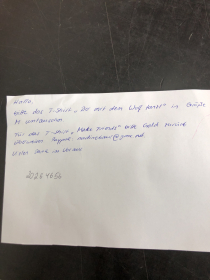 Hallo
bitte das T-Shirt „Der mit dem Wolf tanzt" in Größe
M umtauschen
Für das T-Shirt „Make Friends" bitte Geld zurück
Vielen Dank im Voraus
20264656